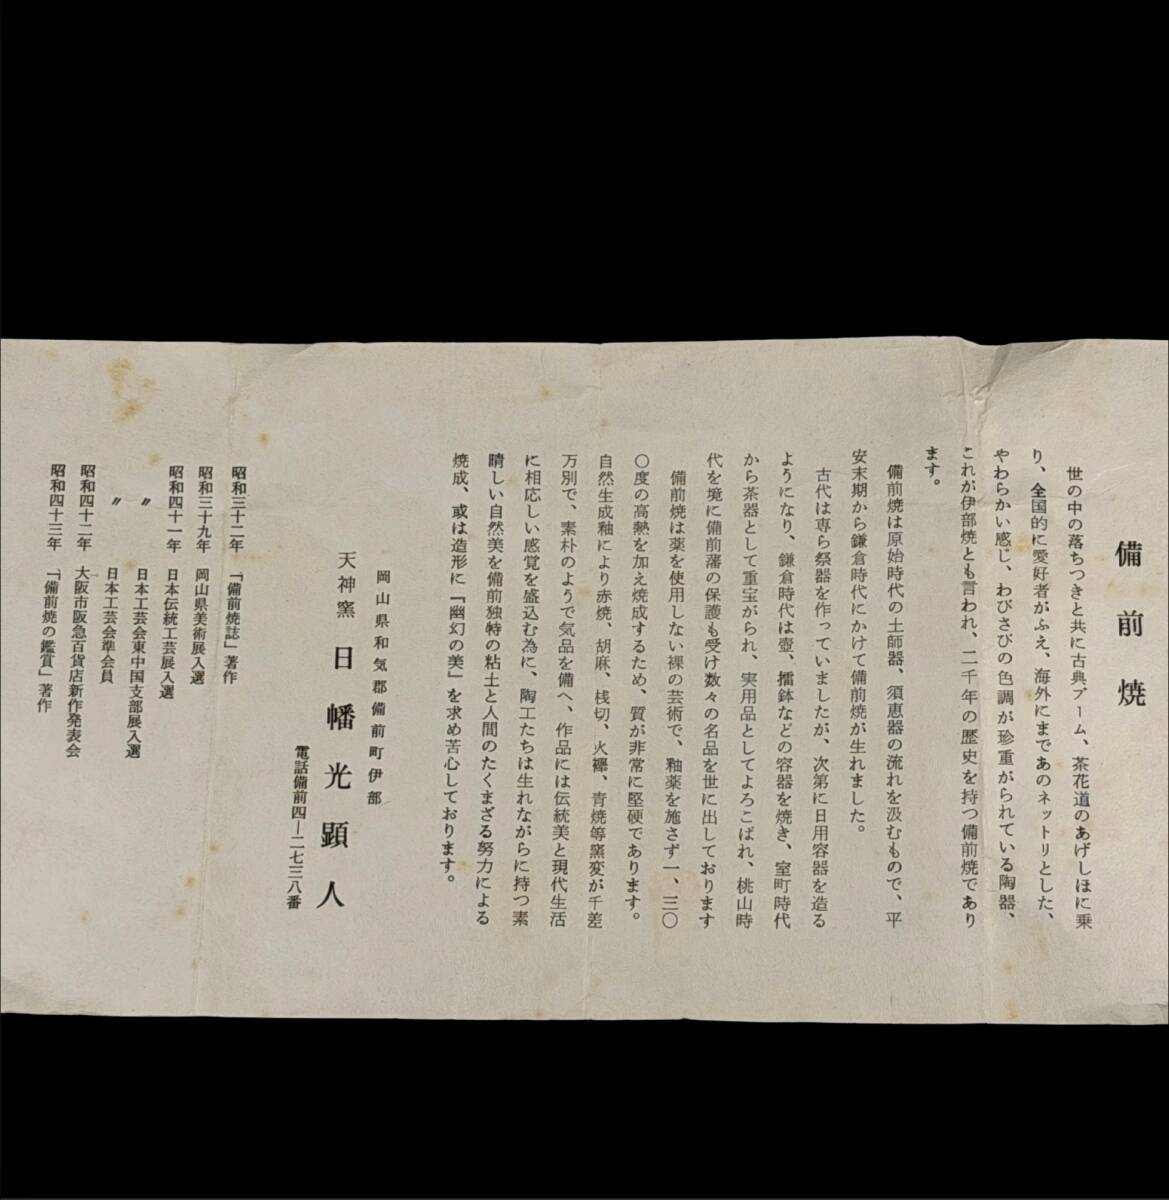 備前焼
世の中の落ちつきと共に古典ブーム、茶花道のあげしほに乗
り、全国的に愛好者がふえ、海外にまであのネットリとした、
やわらかい感じ、わびさびの色調が珍重がられている陶器、
これが伊部焼とも言われ、二千年の歴史を持つ備前焼であり
ます。
備前焼は原始時代の土師器、須恵器の流れを汲むもので、平
安末期から鎌倉時代にかけて備前焼が生れました。
古代は専ら祭器を作っていましたが、次第に日用容器を造る
ようになり、鎌倉時代は壺、擂鉢などの容器を焼き、室町時代
から茶器として重宝がられ、実用品としてよろこばれ、桃山時
代を境に備前藩の保護も受け数々の名品を世に出しております
備前焼は薬を使用しない裸の芸術で、釉薬を施さず一、三〇
〇度の高熱を加え焼成するため、質が非常に堅硬であります。
自然生成釉により赤焼、胡麻、桟切、火襷、青焼等窯変が千差
万別で、素朴のようで気品を備へ、作品には伝統美と現代生活
に相応しい感覚を盛込む為に、陶工たちは生れながらに持つ素
晴しい自然美を備前独特の粘土と人間のたくまざる努力による
焼成、或は造形に『幽幻の美』を求め苦心しております。
岡山県和気郡備前町伊部
天神窯 日幡光顕人
電話備前四―二七三八番
昭和三十二年 「備前焼誌」著作
昭和三十九年 岡山県美術展入選
昭和四十一年 日本伝統工芸展入選
〃 日本工芸会東中国支部展入選
〃 日本工芸会準会員
昭和四十二年 大阪市阪急百貨店新作発表会
昭和四十三年 「備前焼の鑑賞」著作